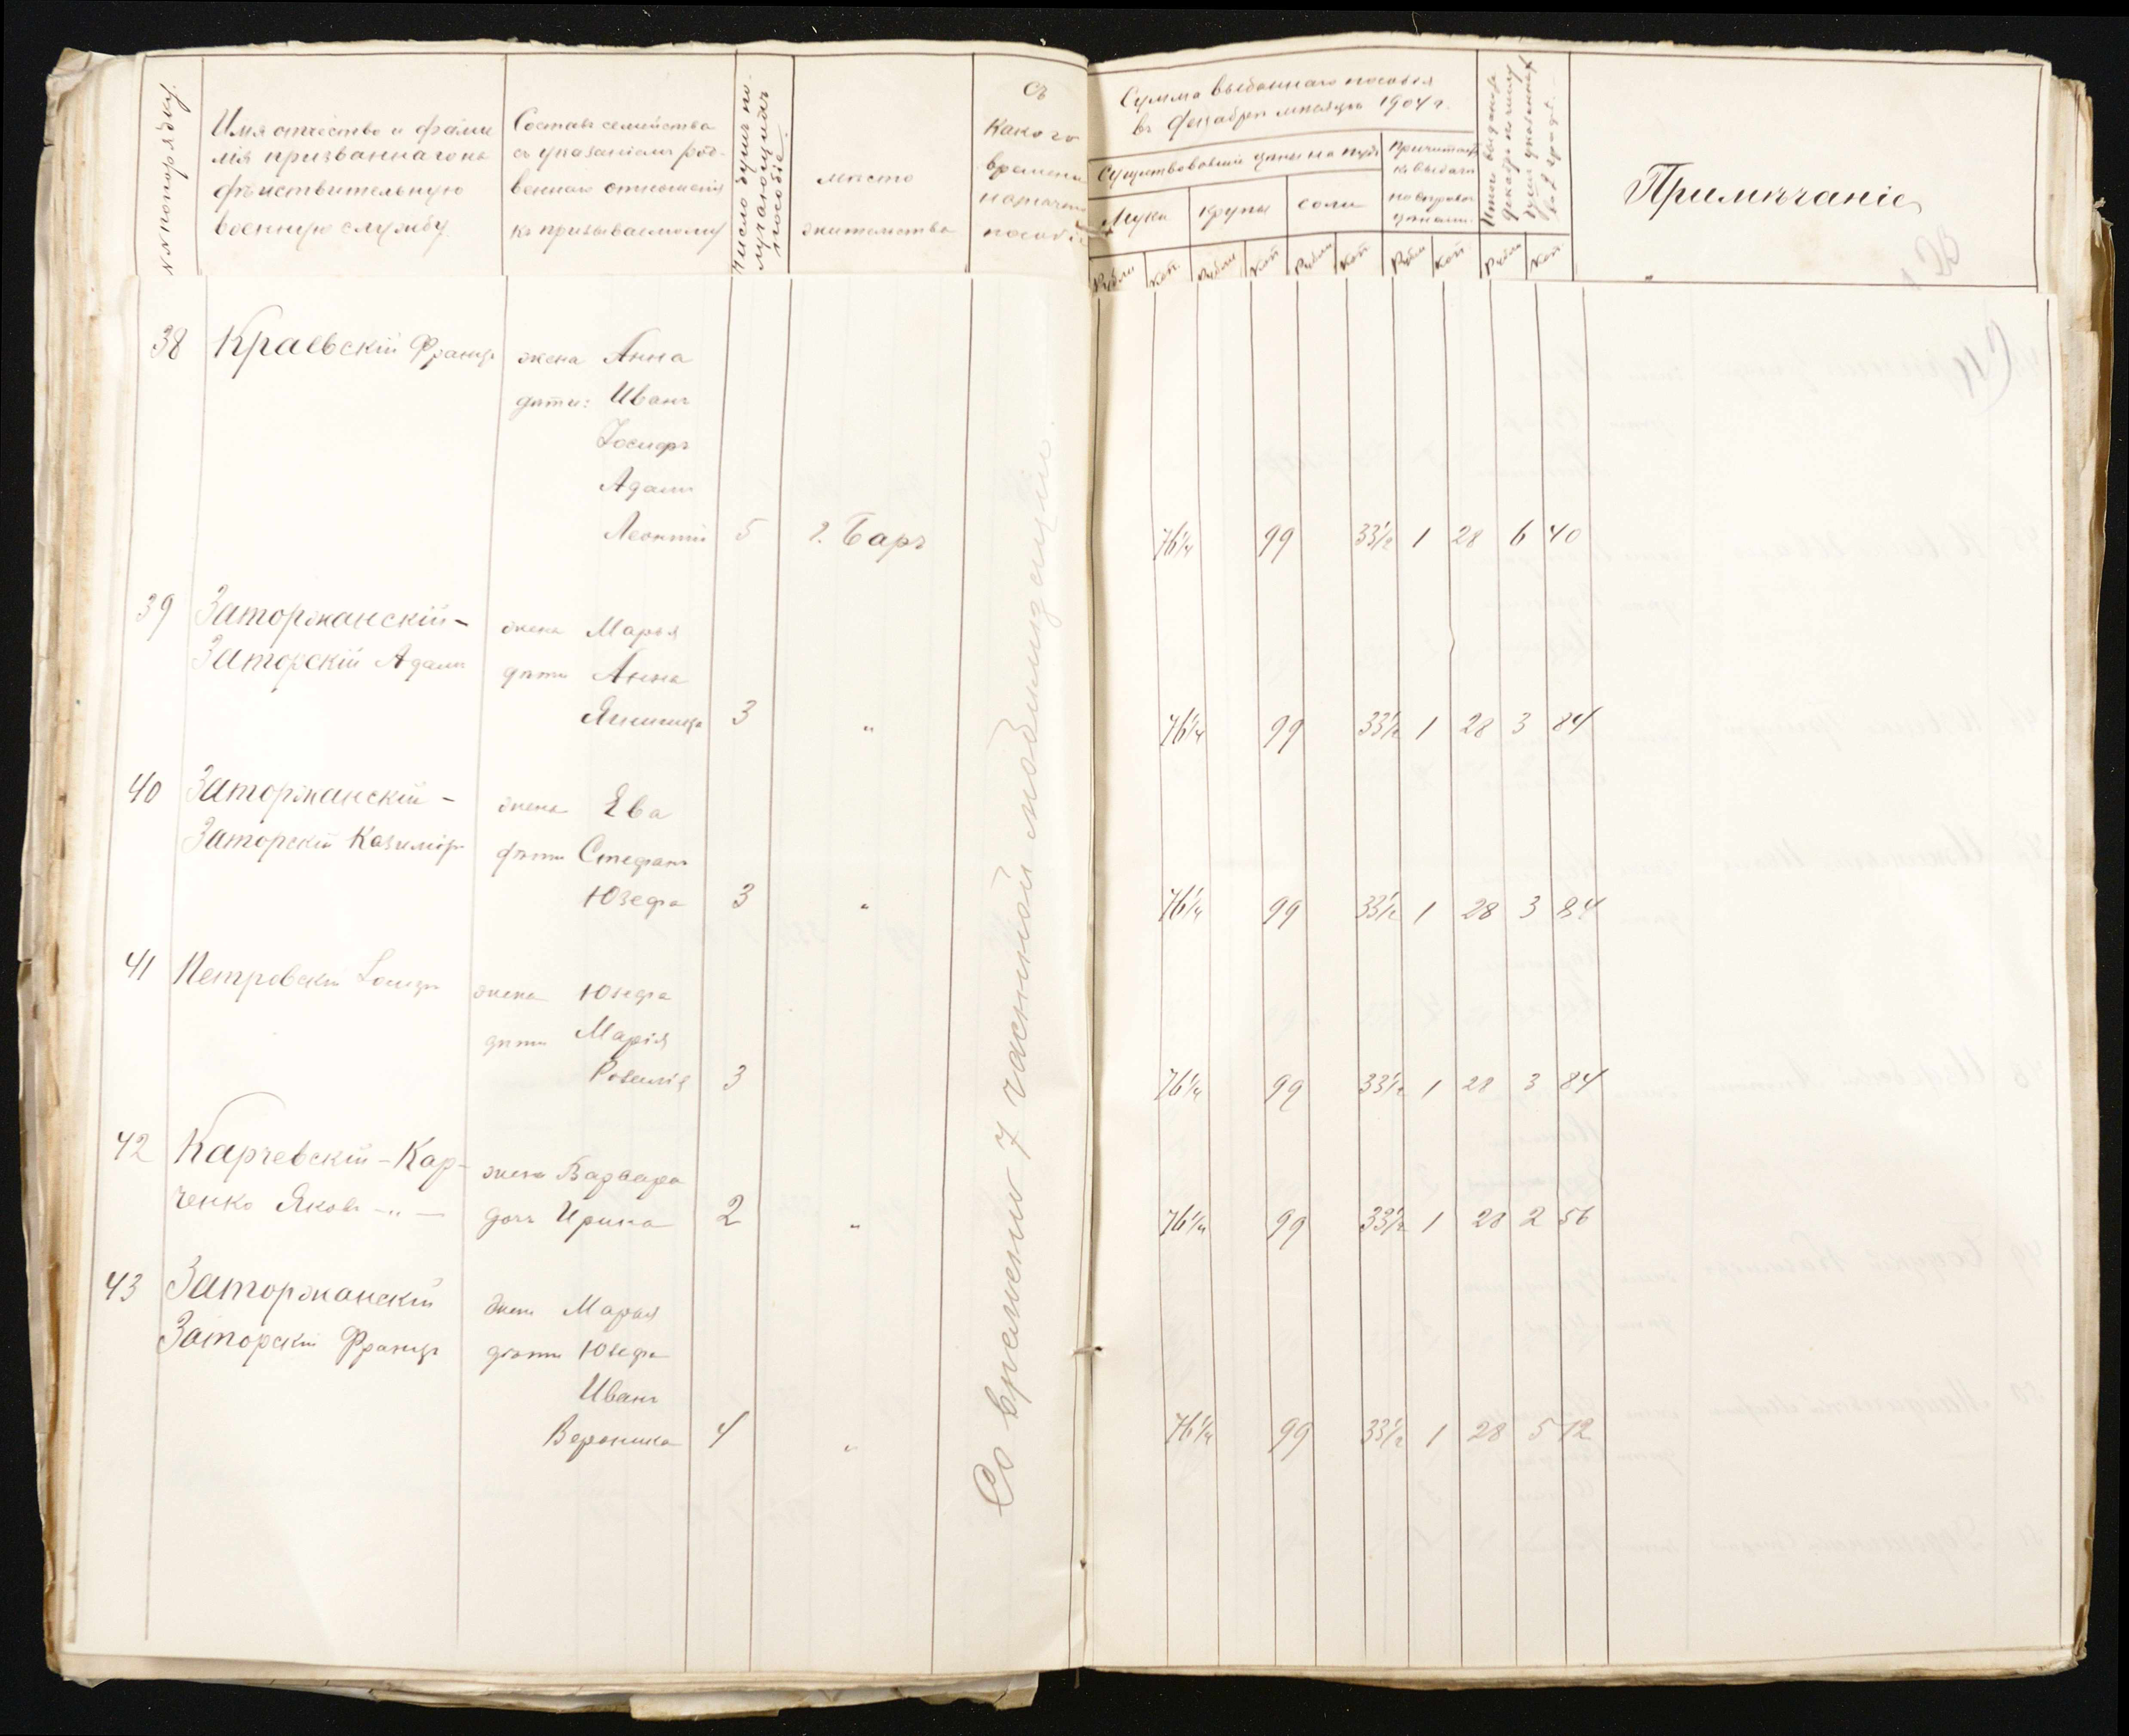 №№ по порядку.
Имя отчество и фами
лія призваннаго на
дѣйствительную
военную службу.
Составъ семейства
съ указаніемъ род-
веннаго отношенія
къ призываемому
Число душъ по-
лучающихъ
пособіе.
мѣсто
жительства
Съ
какого
времени
назначено
пособіе
Сумма выданнаго пособія
въ Декабрѣ мѣсяцѣ 1904 г.
Существовавшія цѣны на пудъ
Мука
крупы
соли
Причитает
къ выдачи
по
цѣнамъ.
Рубли Коп. Рубли Коп Рубли Коп Рубли Коп. Рубли Коп.
Примѣчаніе
38 Краевскій Францъ жена Анна
дѣти: Иванъ
Іосифъ
Адамъ
Леонтій 5 г. Баръ 76¼ 99 33½ 1 28 6 40
39 Заторжанскій- жена Марья
Заторскій Адамъ дѣти Анна
3 „ 76¼ 99 33½ 1 28 3 84
40 Заторжанскій - жена Ева
Заторскій Казиміръ дѣти Стефанъ
Юзефа 3 „ 76¼ 99 33½ 1 28 3 84
41 Петровскій Іосифъ жена Юзефа
дѣти Марія
Розалія 3 76¼ 99 33½ 1 28 3 84
42 Карчевскій-Кар- жена Варвара
ченко Яковъ -„- дочь Ирина 2 „ 76¼ 99 33½ 1 28 2 56
43 Заторжанскій жена Марья
Заторскій Францъ дѣти Юзефа
Иванъ
Вероника 4 „ 76¼ 99 33½ 1 28 5 12
Со времени 7 частной мобилизаціи.